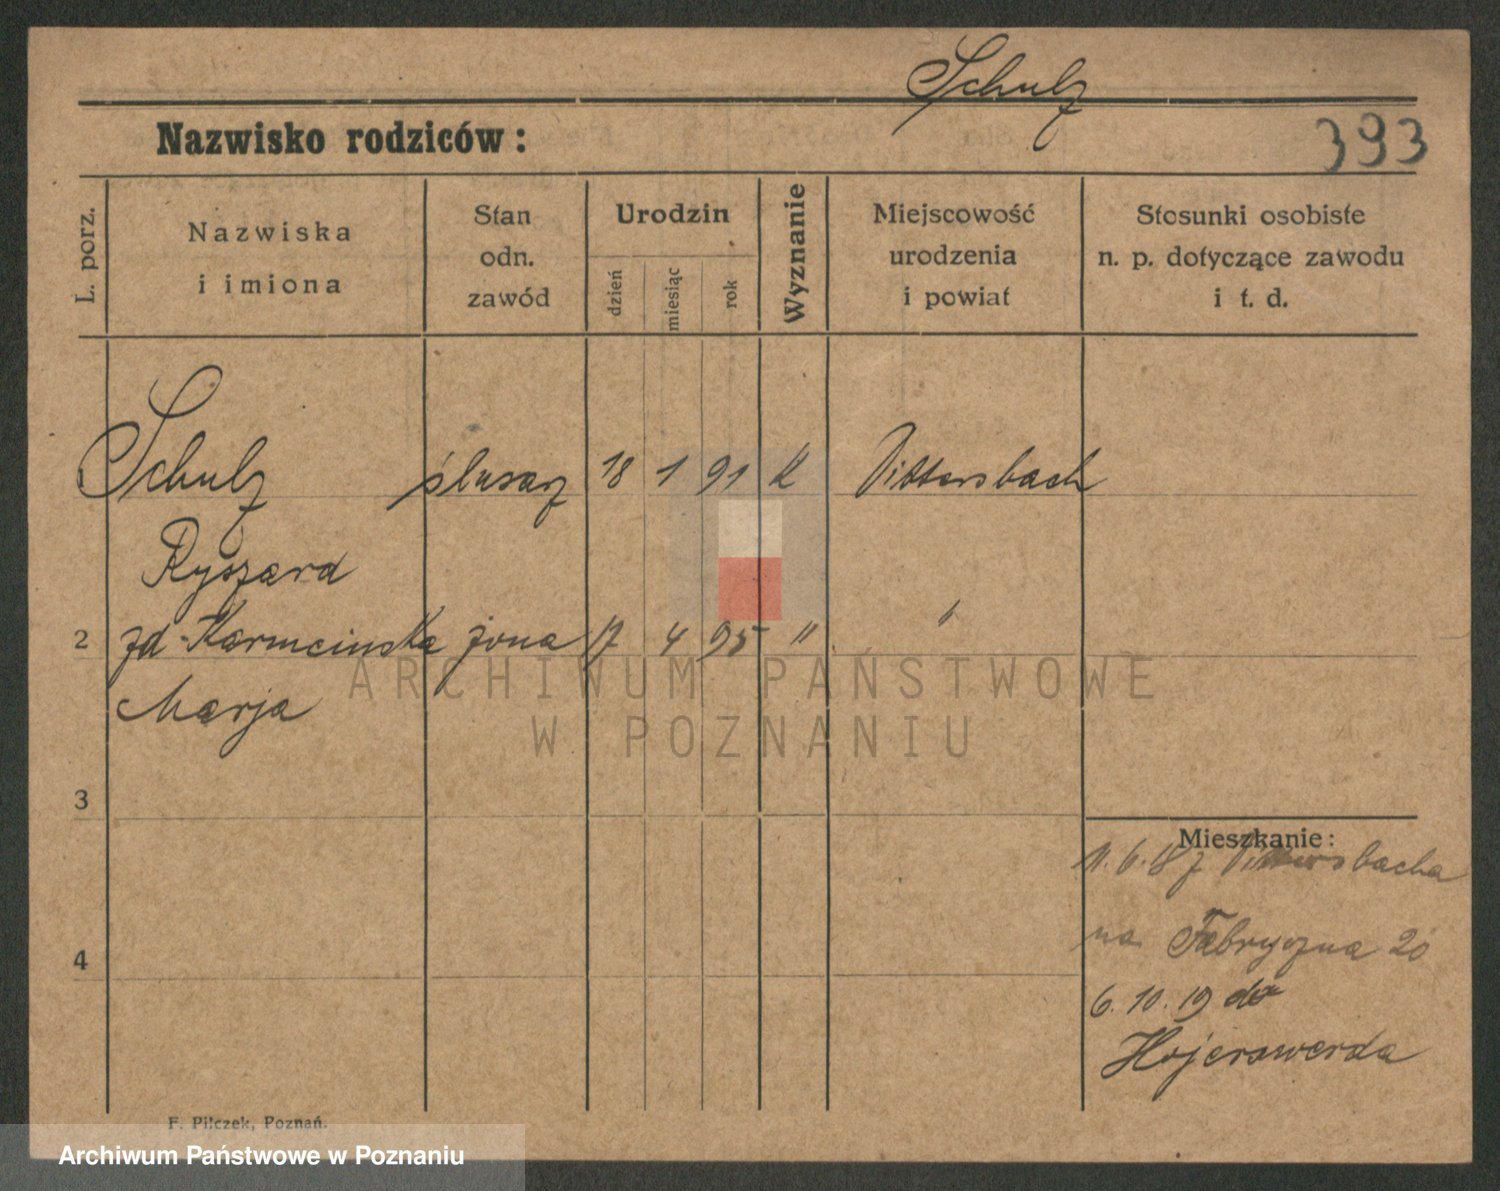 Schulz
Nazwisko rodziców:
393
L. porz.
Nazwiska
i imiona
Stan
odn.
zawód
Urodzin
dzień
miesiąc
rok
Wyznanie
Miejscowość
urodzenia
i powiat
Stosunki osobiste
n. p. dotyczące zawodu
i t. d.
Schulz ślusarz 18 1 91 K Dittersbach
Ryszard
2 zd Karmcinska żona 17 4 95 " "
Marja
ARCHIWUM PAŃSTWOWE
W POZNANIU
3
Mieszkanie:
11.6.18 z Dittersbacha
4
na Fabryczna 20
6.10.19 do
Hojerswerda
F. Pilczek, Poznań.
Archiwum Państwowe w Poznaniu